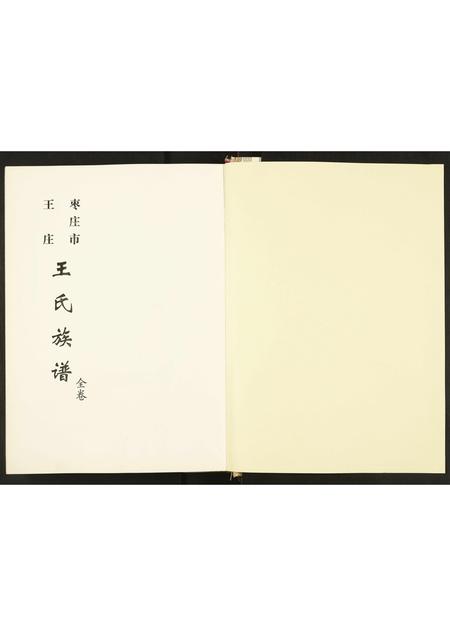 枣庄市
王庄
王氏族谱
全卷